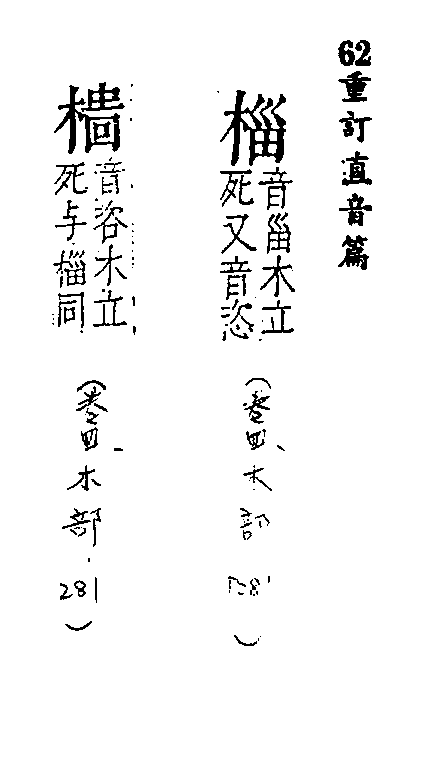 62重訂直音篇
椔
音甾木立
死又音恣
(卷四、木部281)
音咨木立
死与椔同
(卷四、木部.281)